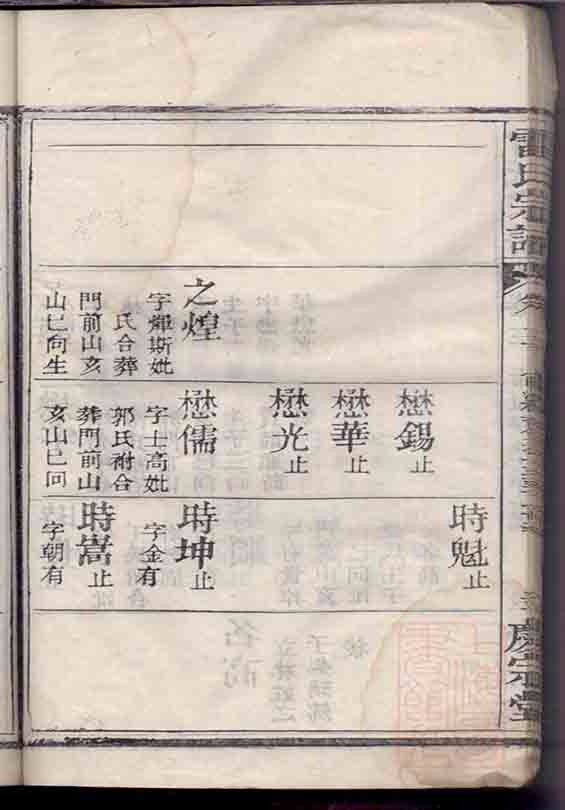 雷氏宗譜
卷
之煌
字煇斯妣
氏合葬
門前山亥
山巳向生
懋錫止
懋華止
懋光止
懋儒
字士高妣
郭氏祔合
葬門前山
亥山巳向
時魁止
時坤止
字金有
時嵩止
字朝有
慶宗堂